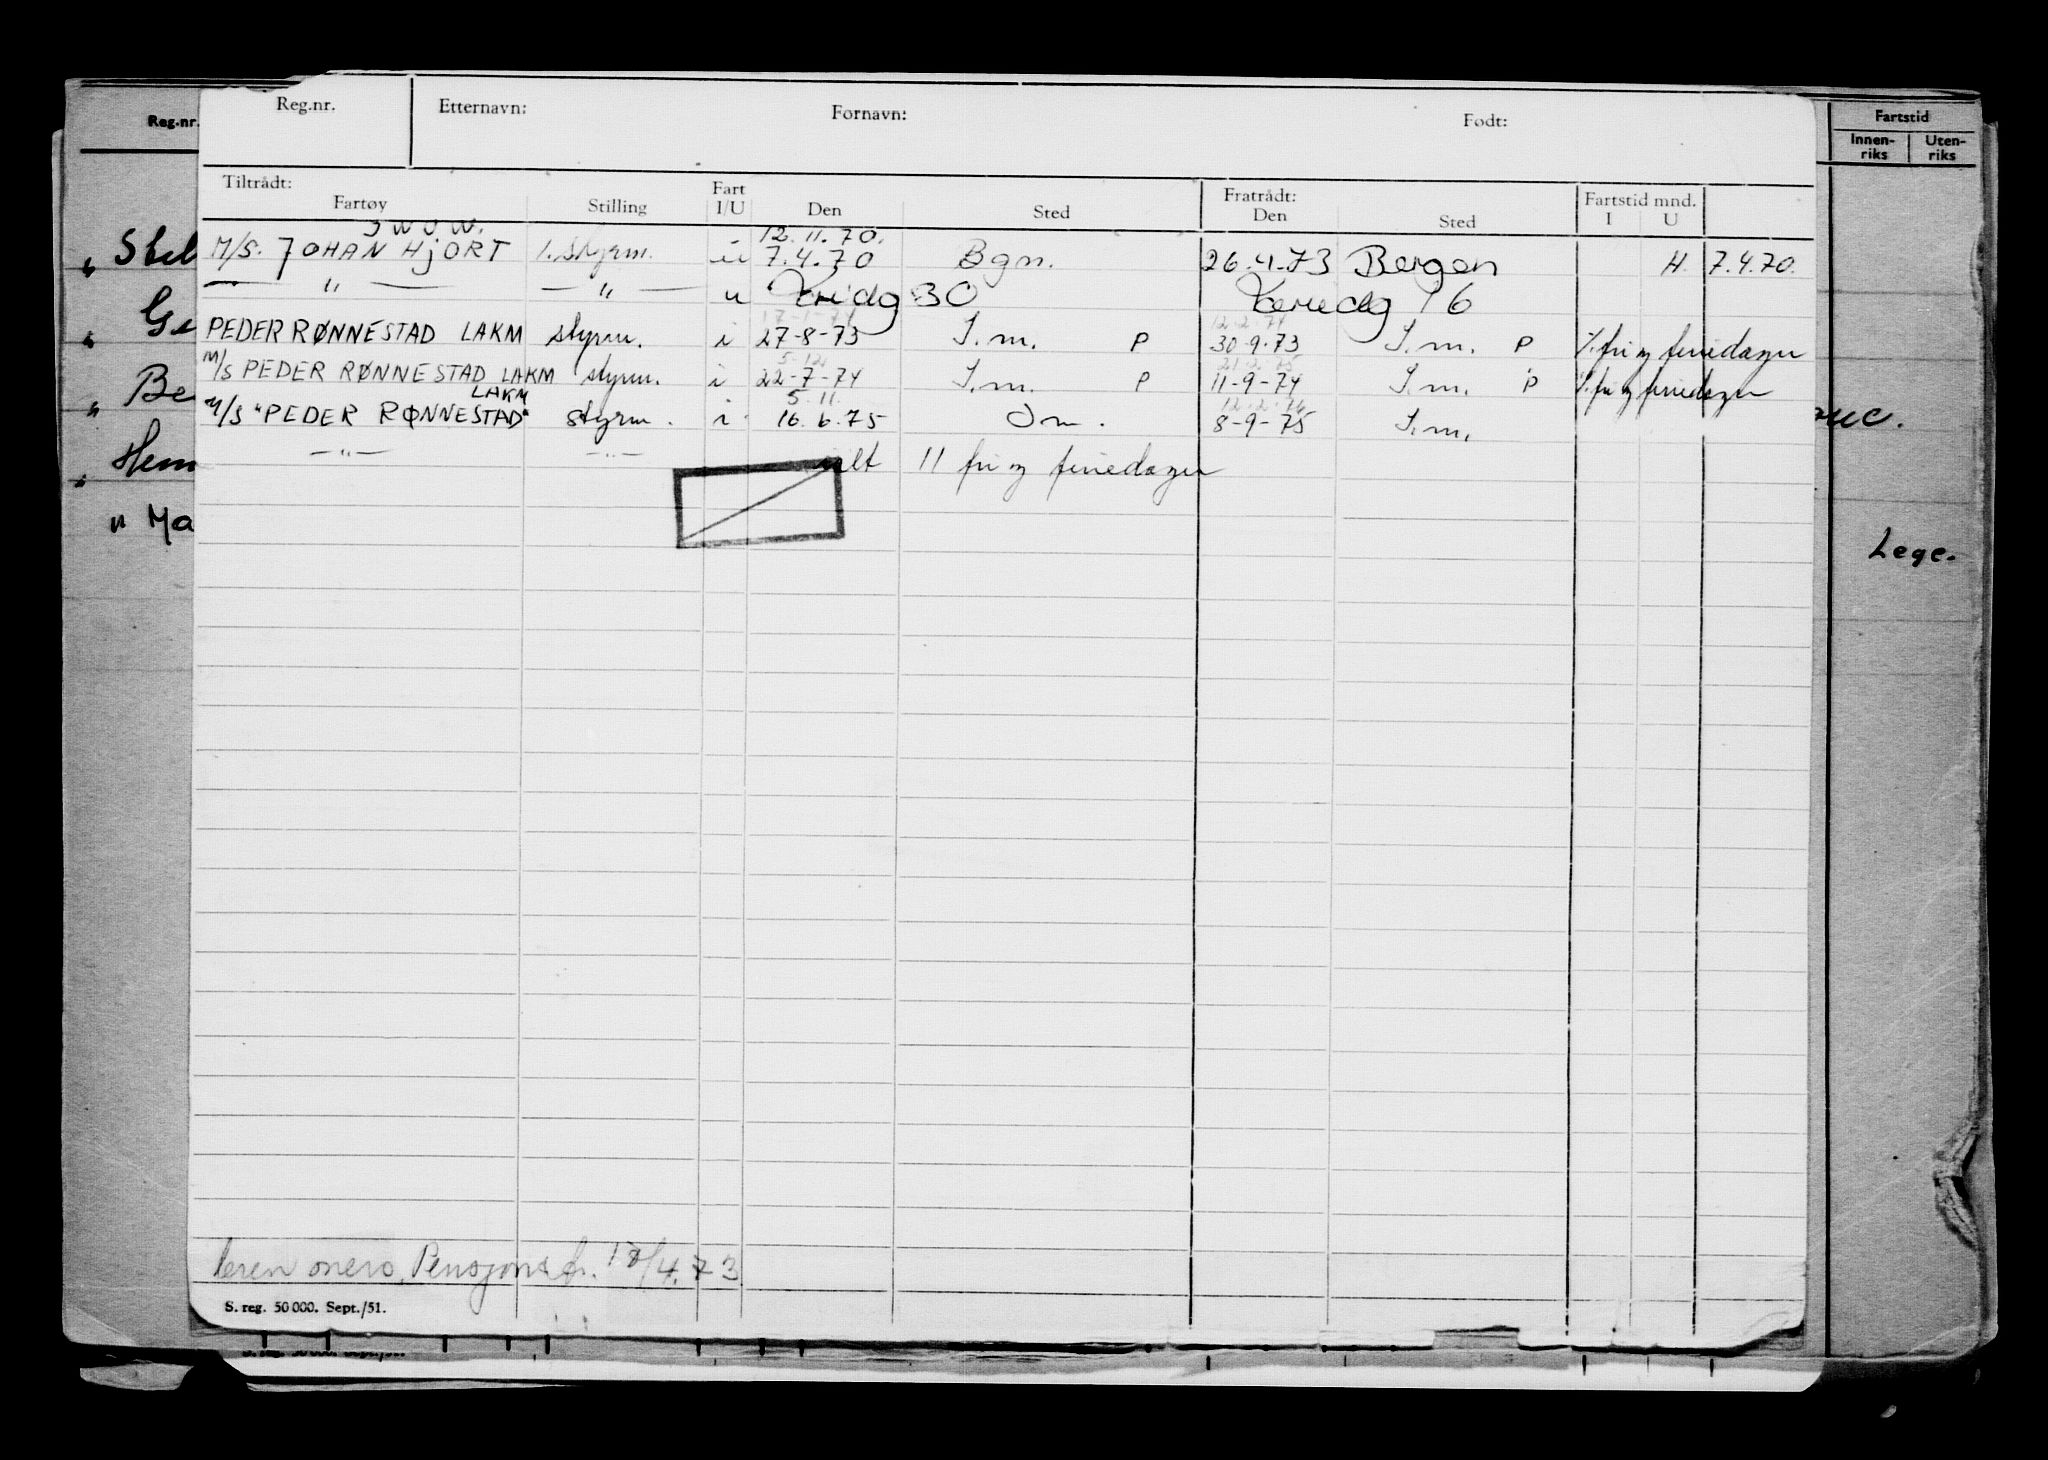 Reg.nr.
Etternavn: Fornavn: Født:
Reg.nr.
Fartstid
Innen-riks Uten-riks
Tiltrådt:
Fartøy Stilling Fart I/U Den Sted
Fratrådt: Den Sted
Fartstid mnd. I U
12.11.70.
M/S. JOHAN HJORT 1. styrm. u 7.4.70 Bgn. 26.4.73 Bergen H. 7.4.70.
— " — — " — u 30 16
17-1-74 12-2-74
PEDER RØNNESTAD LAKM styrm. i 27-8-73 I.m. P 30-9-73 I.m. P %. fri og feriedager
5-12
M/S PEDER RØNNESTAD LAKM styrm. i 22-7-74 I.m. P 11-9-74 I.m. P %. fri og feriedager
LAKM 5.11. 12.2.76
M/S "PEDER RØNNESTAD" styrm. i 16.6.75 I.m. 8-9-75 I.m.
— " — — " — 11 fri og feriedager
" Ma
Lege.
Pensjons 4.73
S. reg. 50 000. Sept./51.